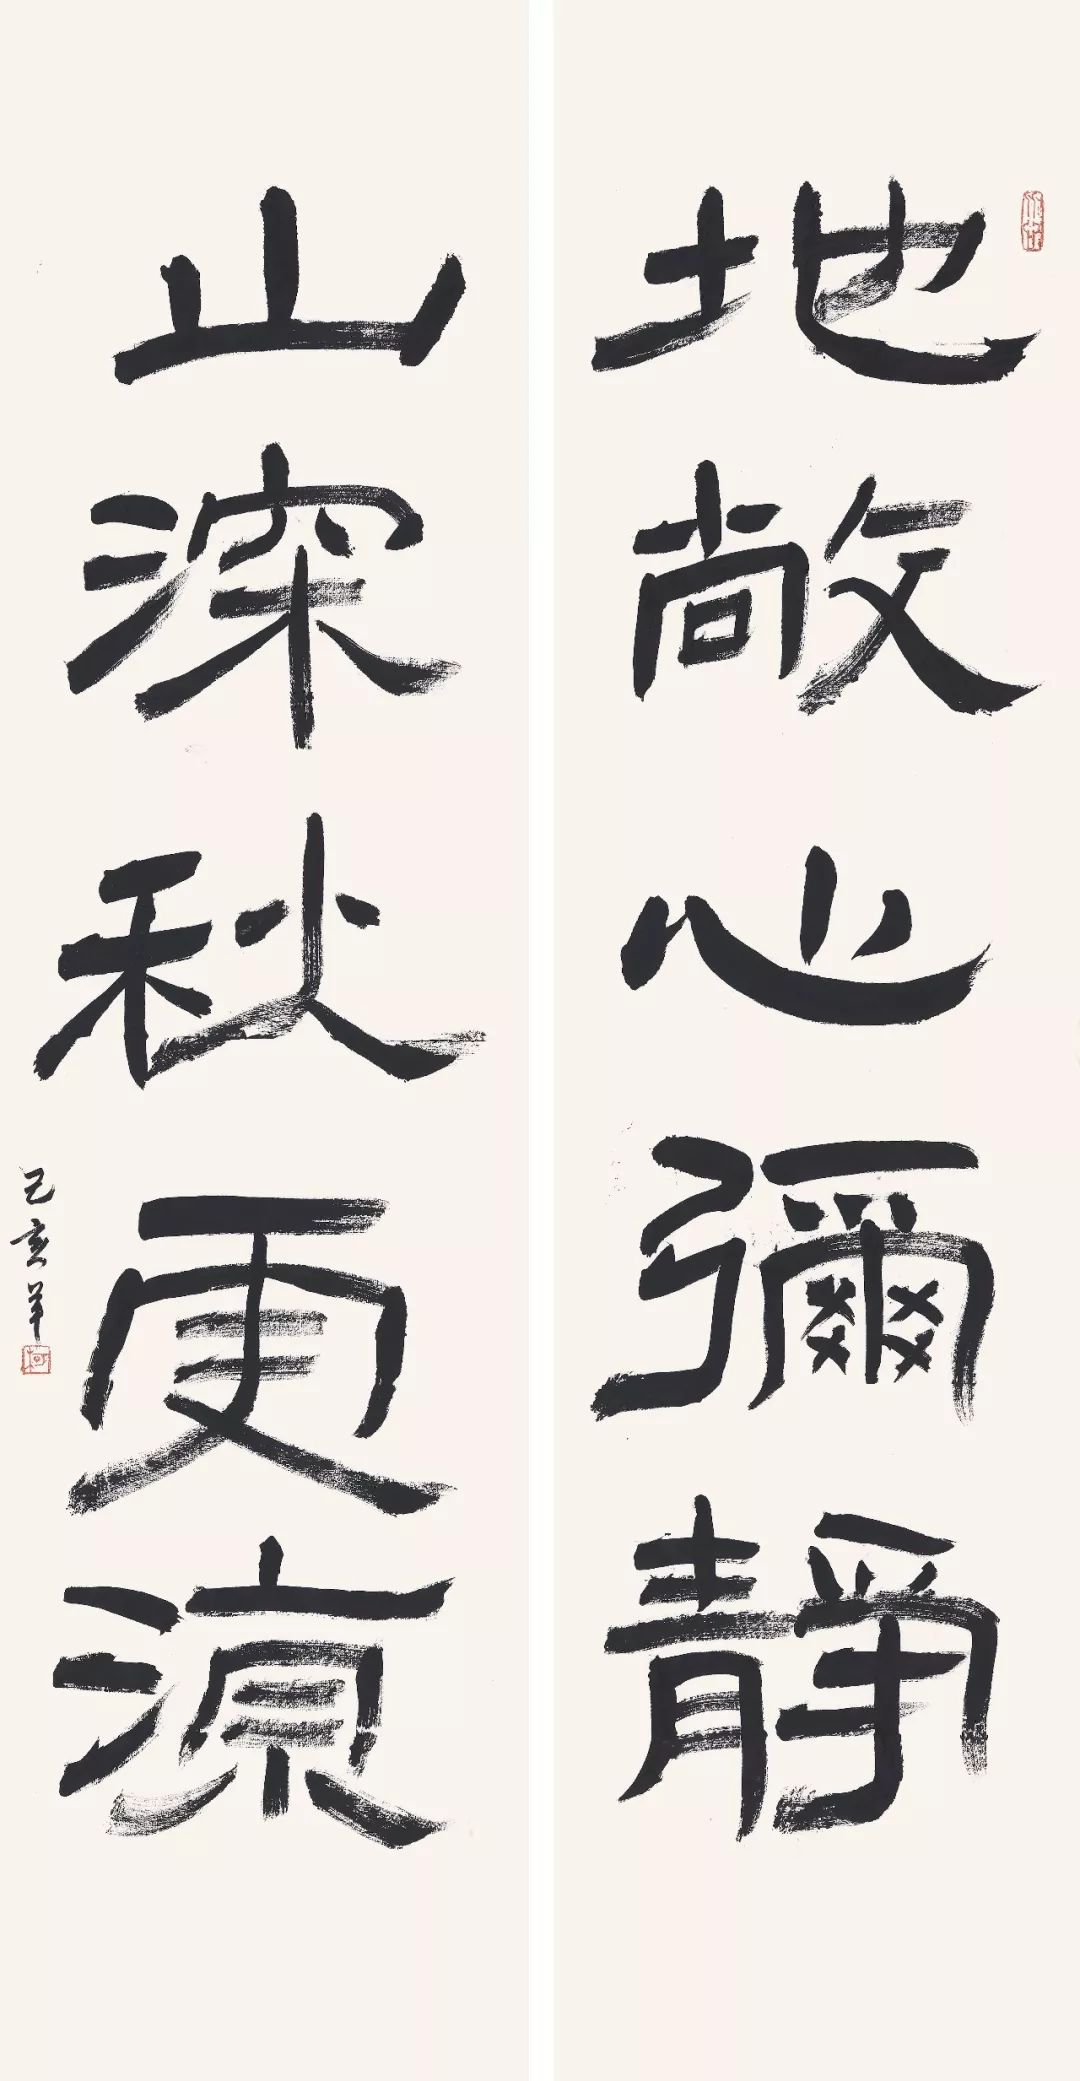 地敞心彌静
山深秋更涼
己亥羊